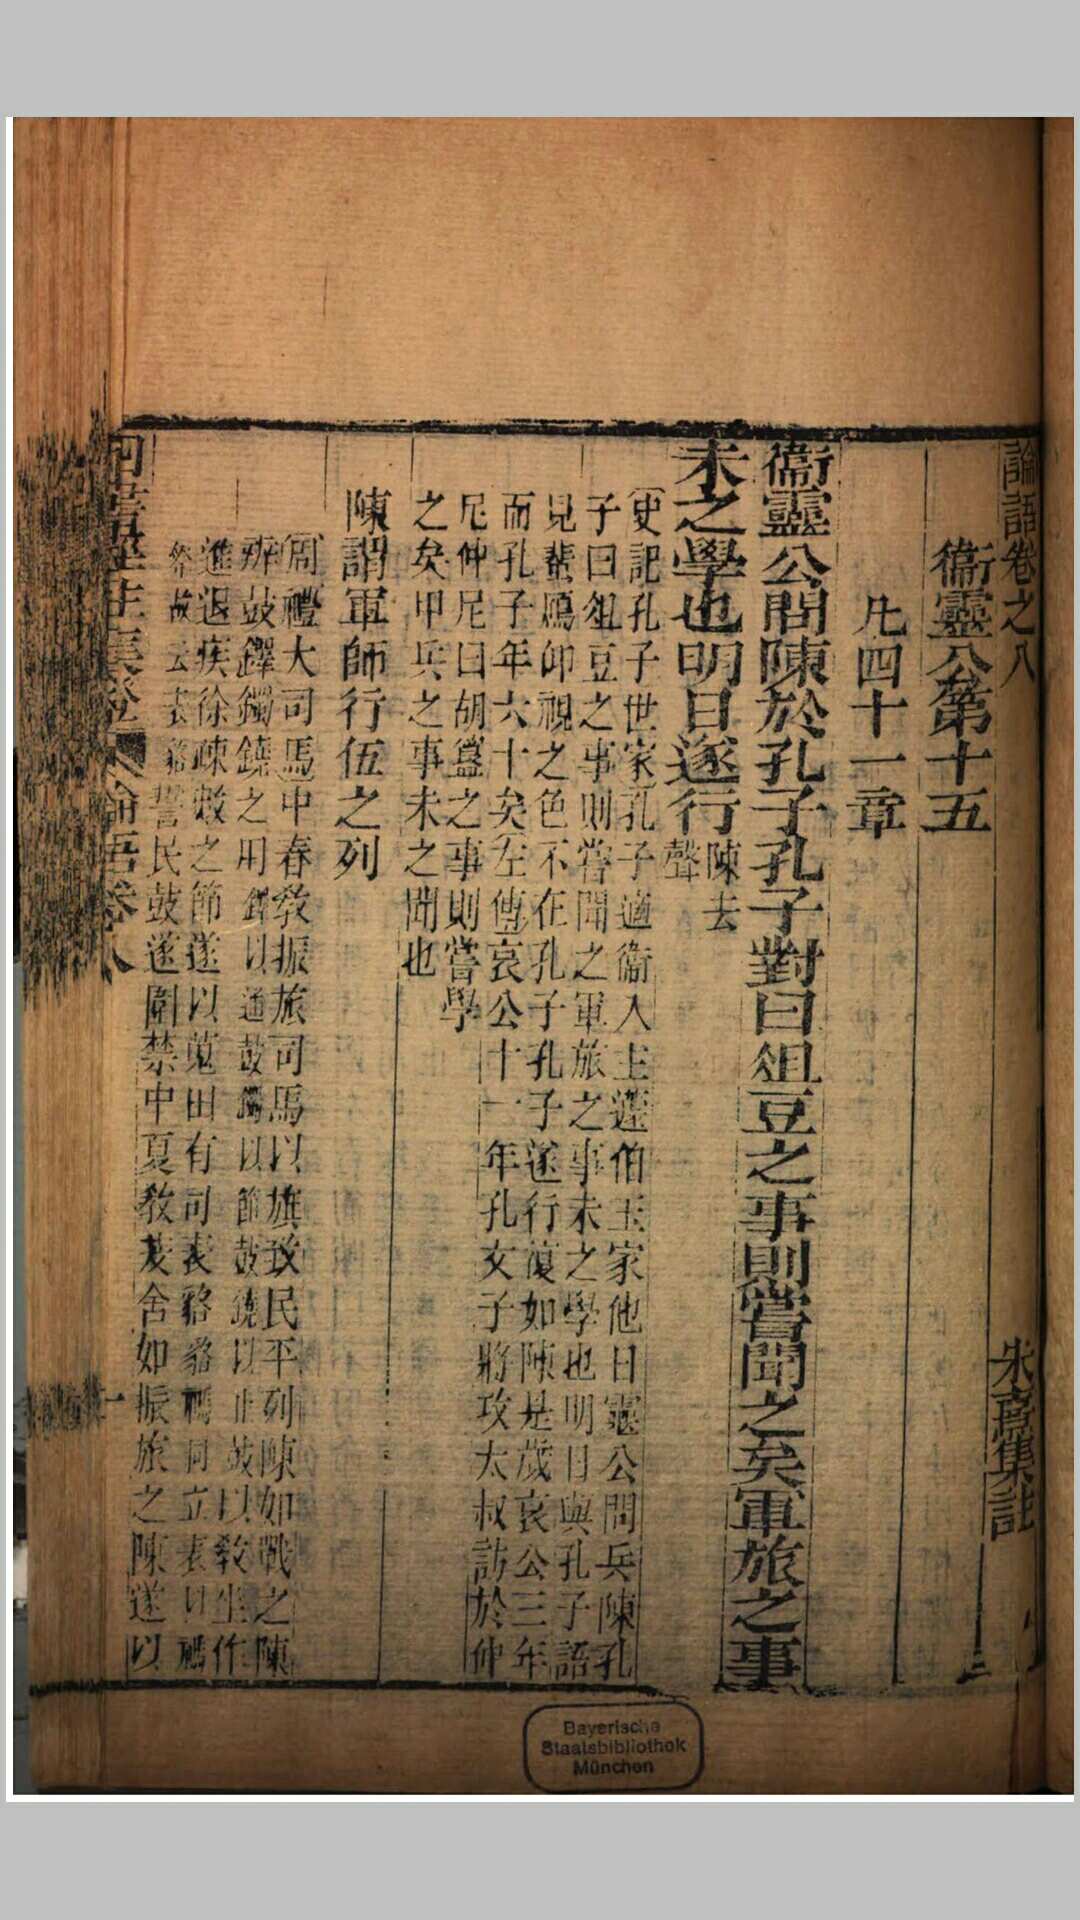 論語卷之八
朱熹集註
衞靈公第十五
凡四十一章
衞靈公問陳於孔子孔子對曰俎豆之事則嘗聞之矣軍旅之事
未之學也明日遂行
陳去
聲
史記孔子世家孔子適衞入主蘧伯玉家他日靈公問兵陳孔
子曰俎豆之事則嘗聞之軍旅之事未之學也明日與孔子語
見蜚鴈仰視之色不在孔子孔子遂行復如陳是歲哀公三年
而孔子年六十矣左傳哀公十一年孔文子將攻太叔訪於仲
尼仲尼曰胡簋之事則嘗學
之矣甲兵之事未之聞也
陳謂軍師行伍之列
周禮大司馬中春敎振旅司馬以旗致民平列陳如戰之陳
辨鼓鐸鐲鐃之用鐸以通鼓鐲以節鼓鐃以止鼓以敎坐作
進退疾徐疎數之節遂以蒐田有司表貉
貉禡同立表以禡
祭故云表貉
誓民鼓遂圍禁中夏敎茇舍如振旅之陳遂以
論語卷八
一
Bayerische
Staatsbibliothek
München